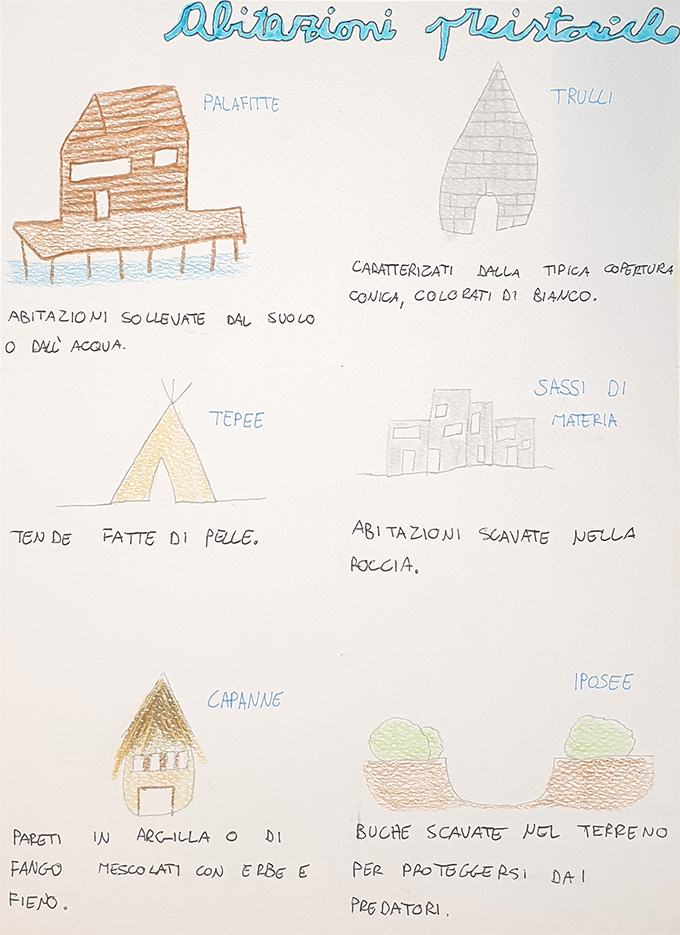 Abitazioni preistoriche
PALAFITTE
ABITAZIONI SOLLEVATE DAL SUOLO
O DALL' ACQUA.
TRULLI
CARATTERIZATI DALLA TIPICA COPERTURA
CONICA, COLORATI DI BIANCO.
TEPEE
TENDE FATTE DI PELLE.
SASSI DI
MATERIA
ABITAZIONI SCAVATE NELLA
ROCCIA.
CAPANNE
PARETI IN ARGILLA O DI
FANGO MESCOLATI CON ERBE E
FIENO.
IPOSEE
BUCHE SCAVATE NEL TERRENO
PER PROTEGGERSI DAI
PREDATORI.